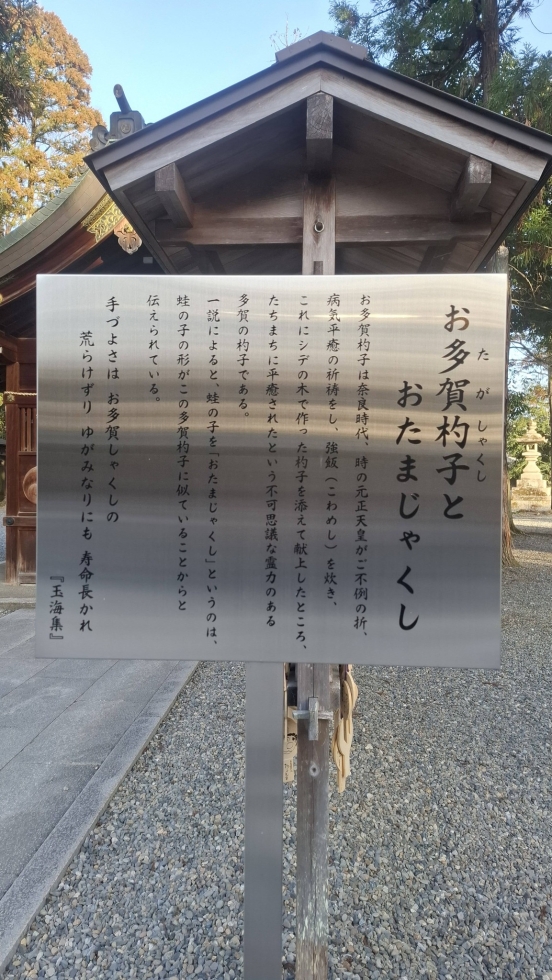 お多賀杓子と
たがしゃくし
おたまじゃくし
お多賀杓子は奈良時代、時の元正天皇がご不例の折、
病気平癒の祈祷をし、強飯（こわめし）を炊き、
これにシデの木で作った杓子を添えて献上したところ、
たちまちに平癒されたという不可思議な霊力のある
多賀の杓子である。
一説によると、蛙の子を「おたまじゃくし」というのは、
蛙の子の形がこの多賀杓子に似ていることからと
伝えられている。
手づよさは お多賀しゃくしの
荒らけずり ゆがみなりにも 寿命長かれ
『玉海集』